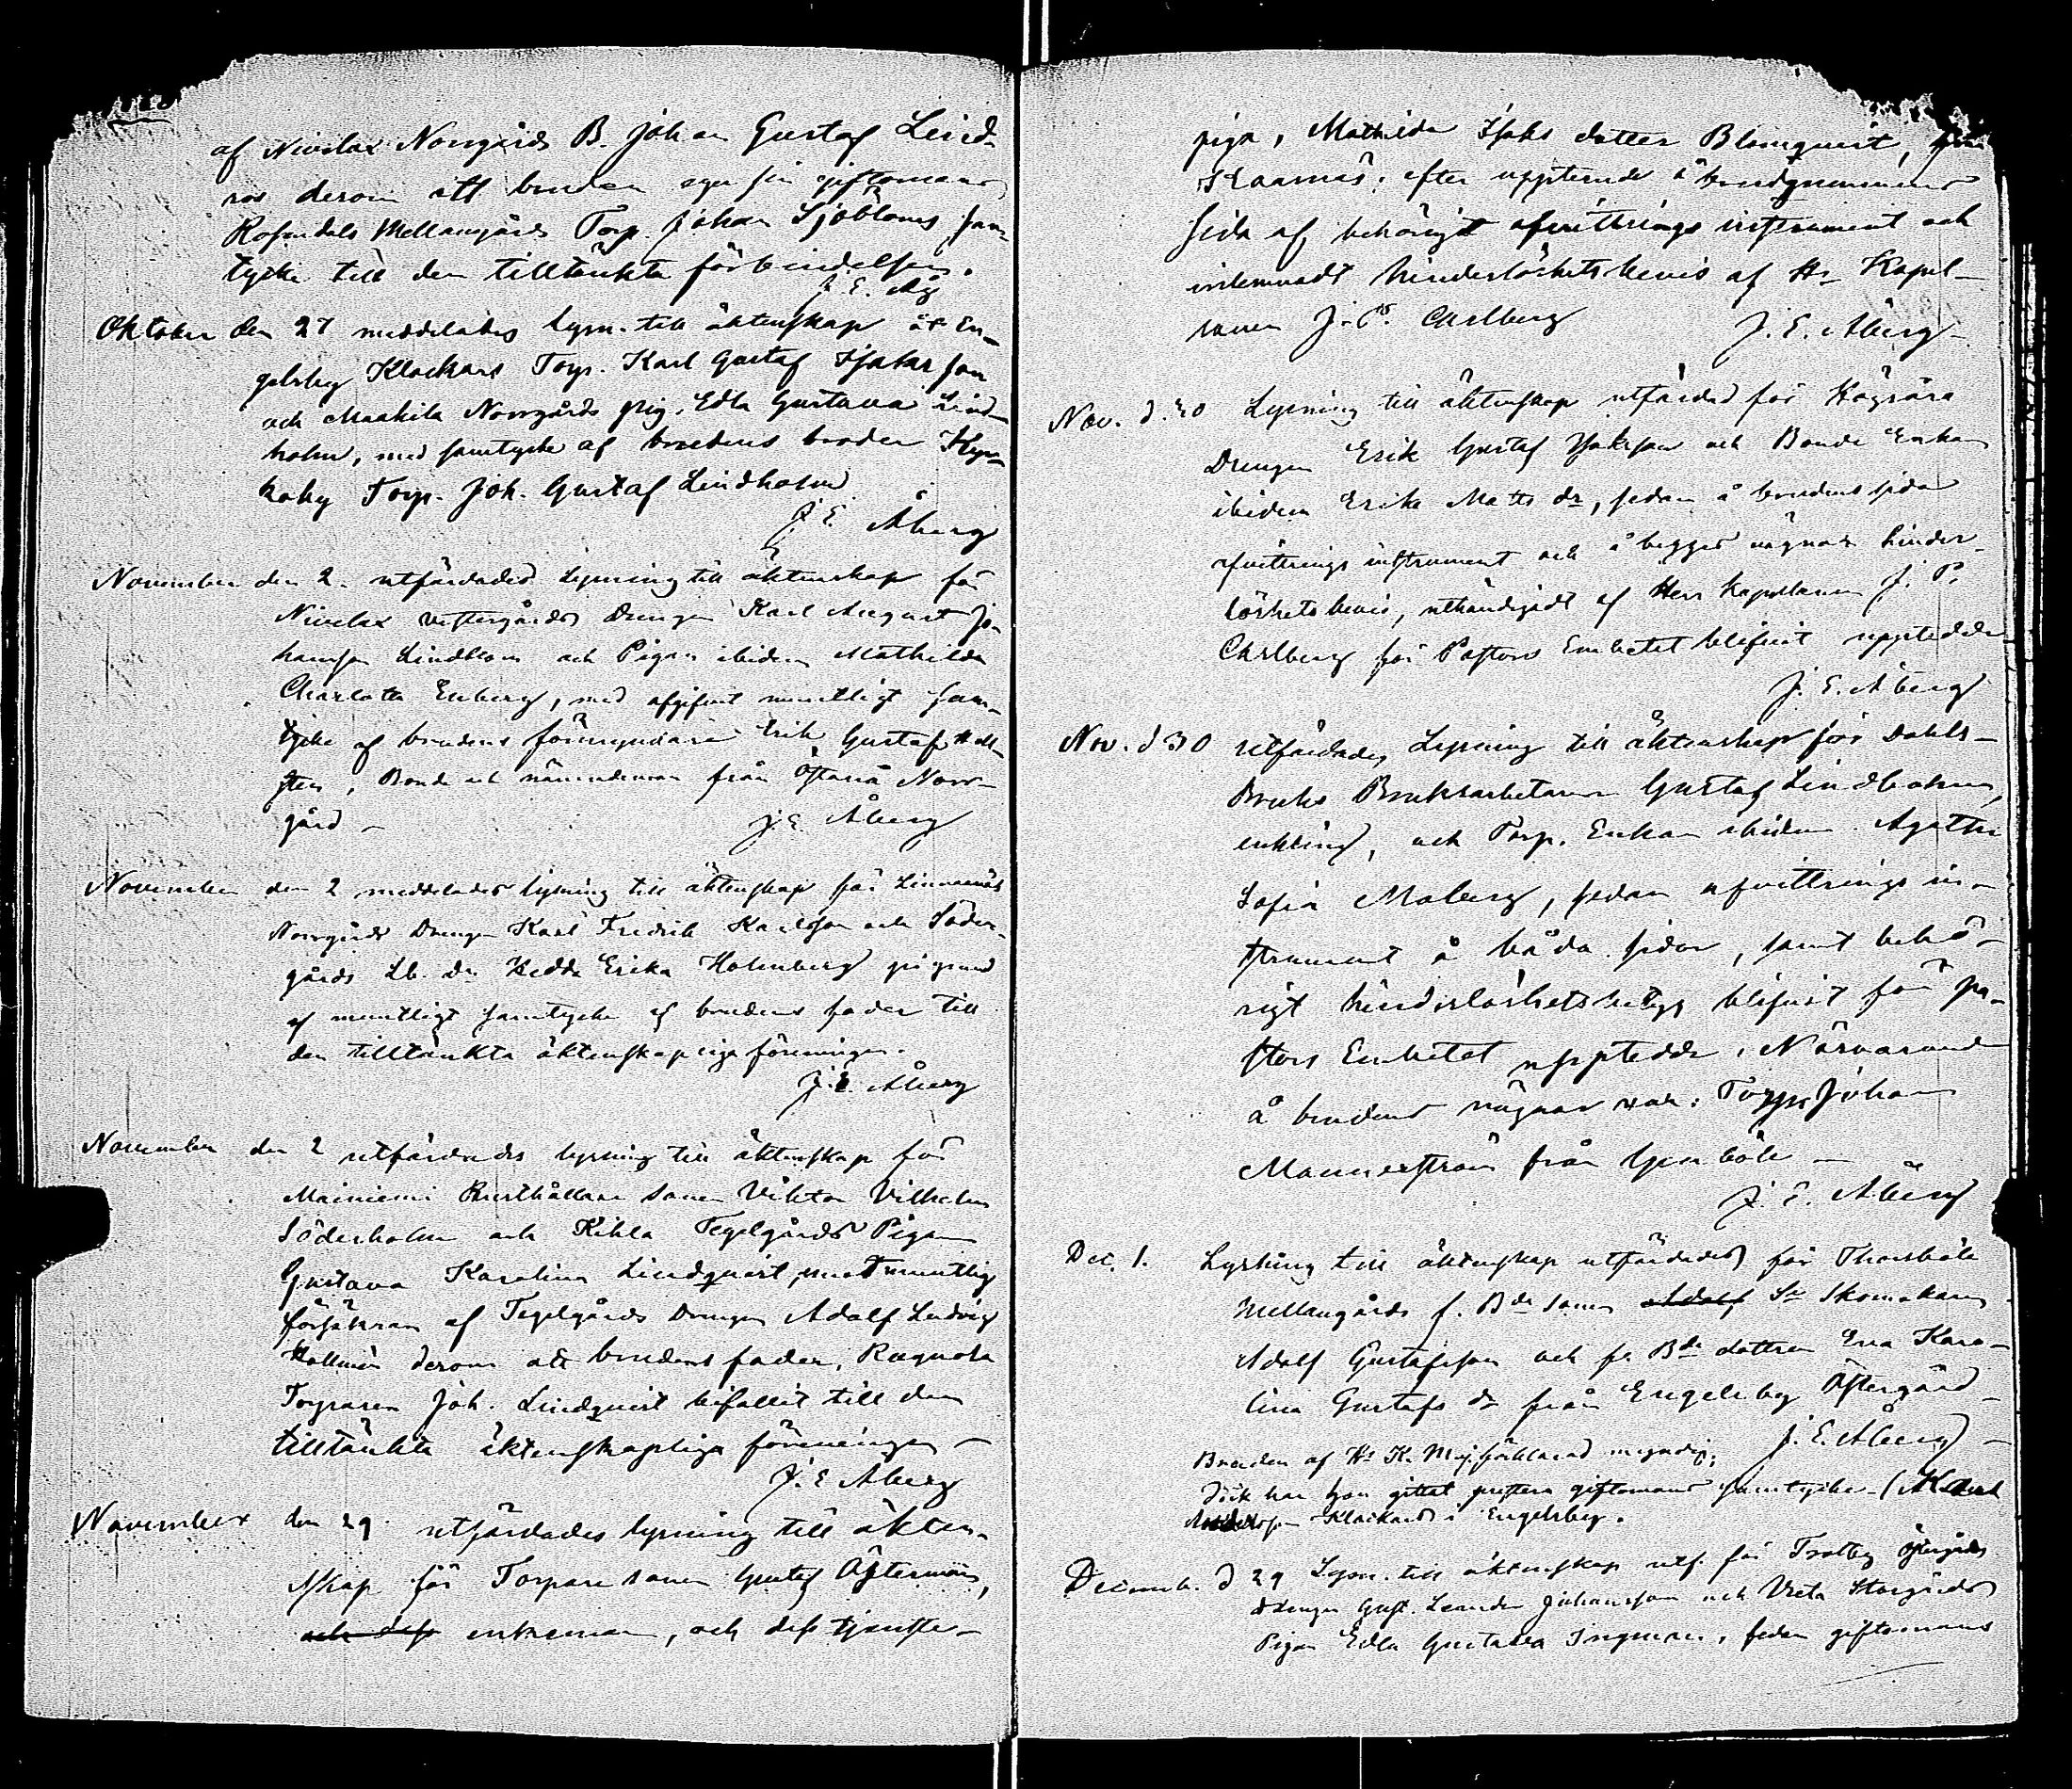 af Nivelax Norrgårds B. Johan Gustaf Lind-
ros derom att bruden eger sin giftomans
Rosendals Mellangårds Torp. Johan Sjöbloms sam-
tycke till den tilltänkta förbindelsen.
J. E. Åbg
Oktober den 27 meddelades lysn. till äktenskap åt En-
gelsby Klockars Torp. Karl Gustaf Isaksson
och Maakila Norrgårds pig. Edla Gustava Lind-
holm, med samtycke af brudens broder Kyr-
koby Torp. Joh. Gustaf Lindholm
J. E. Åberg
November den 2. utfärdades lysning till äktenskap för
Nivelax Vestergårds drengen Karl August Jo-
hansson Lindblom och Pigan ibidem Mathilda
Charlotta Enberg, med afgifvet muntligt sam-
tycke af brudens förmyndare Erik Gustaf Hall-
sten, Bonde och nämndeman från Östanå Norr-
gård –
J. E. Åberg
November den 2 meddelades lysning till äktenskap för Linnenäs
Norrgårds Drengen Karl Fredrik Karlsson och Söder-
gårds Lb. dr Hedda Erika Holmberg på grund
af muntligt samtycke af brudens fader till
den tilltänkta äktenskapliga föreningen.
J. E. Åberg
November den 2 utfärdades lysning till äktenskap för
Mainiemi Rusthållare sonen Viktor Vilhelm
Söderholm och Kihla Tegelgårds Pigan
Gustava Karolina Lindqvist, med muntlig
försäkran af Tegelgårds Drengen Adolf Ludvig
Hallmén derom att brudens fader, Rugnola
Torparen Joh. Lindqvist bifallit till den
tilltänkta äktenskapliga föreningen –
J. E. Åberg
November den 29 utfärdades lysning till äkten-
skap för Torpare sonen Gustaf Österman,
och dess enkeman, och dess tjenste-
piga, Mathilda Isaks dotter Blomqvist, från
Skarnäs: efter uppteende å brudgummens
sida af behörigt afvittrings instrument och
inlemnadt hinderlöshetsbevis af Hr Kapel-
lanen J. P. Carlberg
J. E. Åberg –
Nov. d. 30 Lysning till äktenskap utfärdad för Högsåra
Drengen Erik Gustaf Isaksson och Bonde Enkan
ibidem Erika Matts dr, sedan å brudens sida
afvittrings instrument och å begges vägnar hinder-
löshetsbevis, uthändigadt af Herr Kapellanen J. P.
Carlberg för Pastors Embetet blifvit uppteddt
J. E. Åberg
Nov. d 30 utfärdades Lysning till äktenskap för Dahls-
Bruks Bruksarbetaren Gustaf Lindholm,
enkling, och Torp. Enkan ibidem Agatha
Sofia Moberg, sedan afvittrings in-
strument å båda sidor, samt behö-
rigt hinderlöshetsbetyg blifvit för pa-
stors Embetet uppteddt. Närvarande
å brudens vägnar var: Torpr Johan
Mannerström från Genböle –
J. E. Åberg
Dec. 1. Lysning till äktenskap utfärdades för Thorsböle
Mellangårds f. Bde sonen Adolf Sn Skomakaren
Adolf Gustafsson och f. Bde dottren Eva Karo-
lina Gustafs dr från Engelsby Östergård –
J. E. Åberg –
Bruden af Hs K. Maj. förklarad myndig;
Dock har hon gittat prestera giftomans samtycke –
Klockars i Engelsby.
Decemb. d 29 Lysn. till äktenskap utf. för Trotby Östergårds
drengen Gust. Leander Johansson och Vreta Storgårds
Pigan Edla Gustava Ingman, sedan giftomans